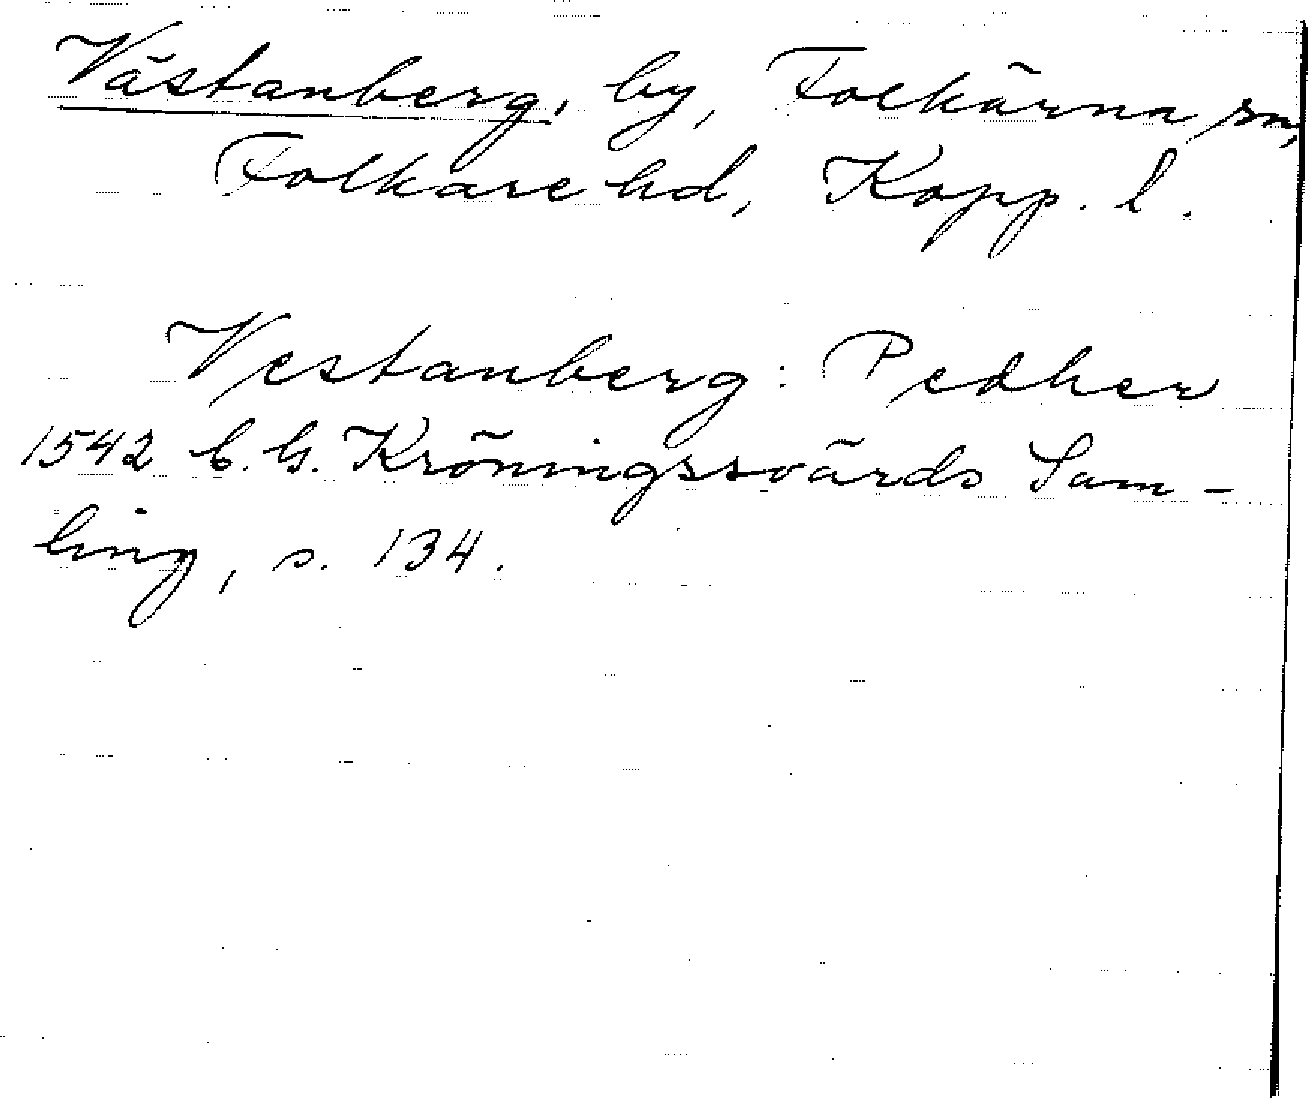 Västanberg, by, Folkärna sn,
Folkare hd, Kopp. l.
Vestanberg: Pedher
1542 C. G. Kröningssvärds Sam-
ling, s. 134.